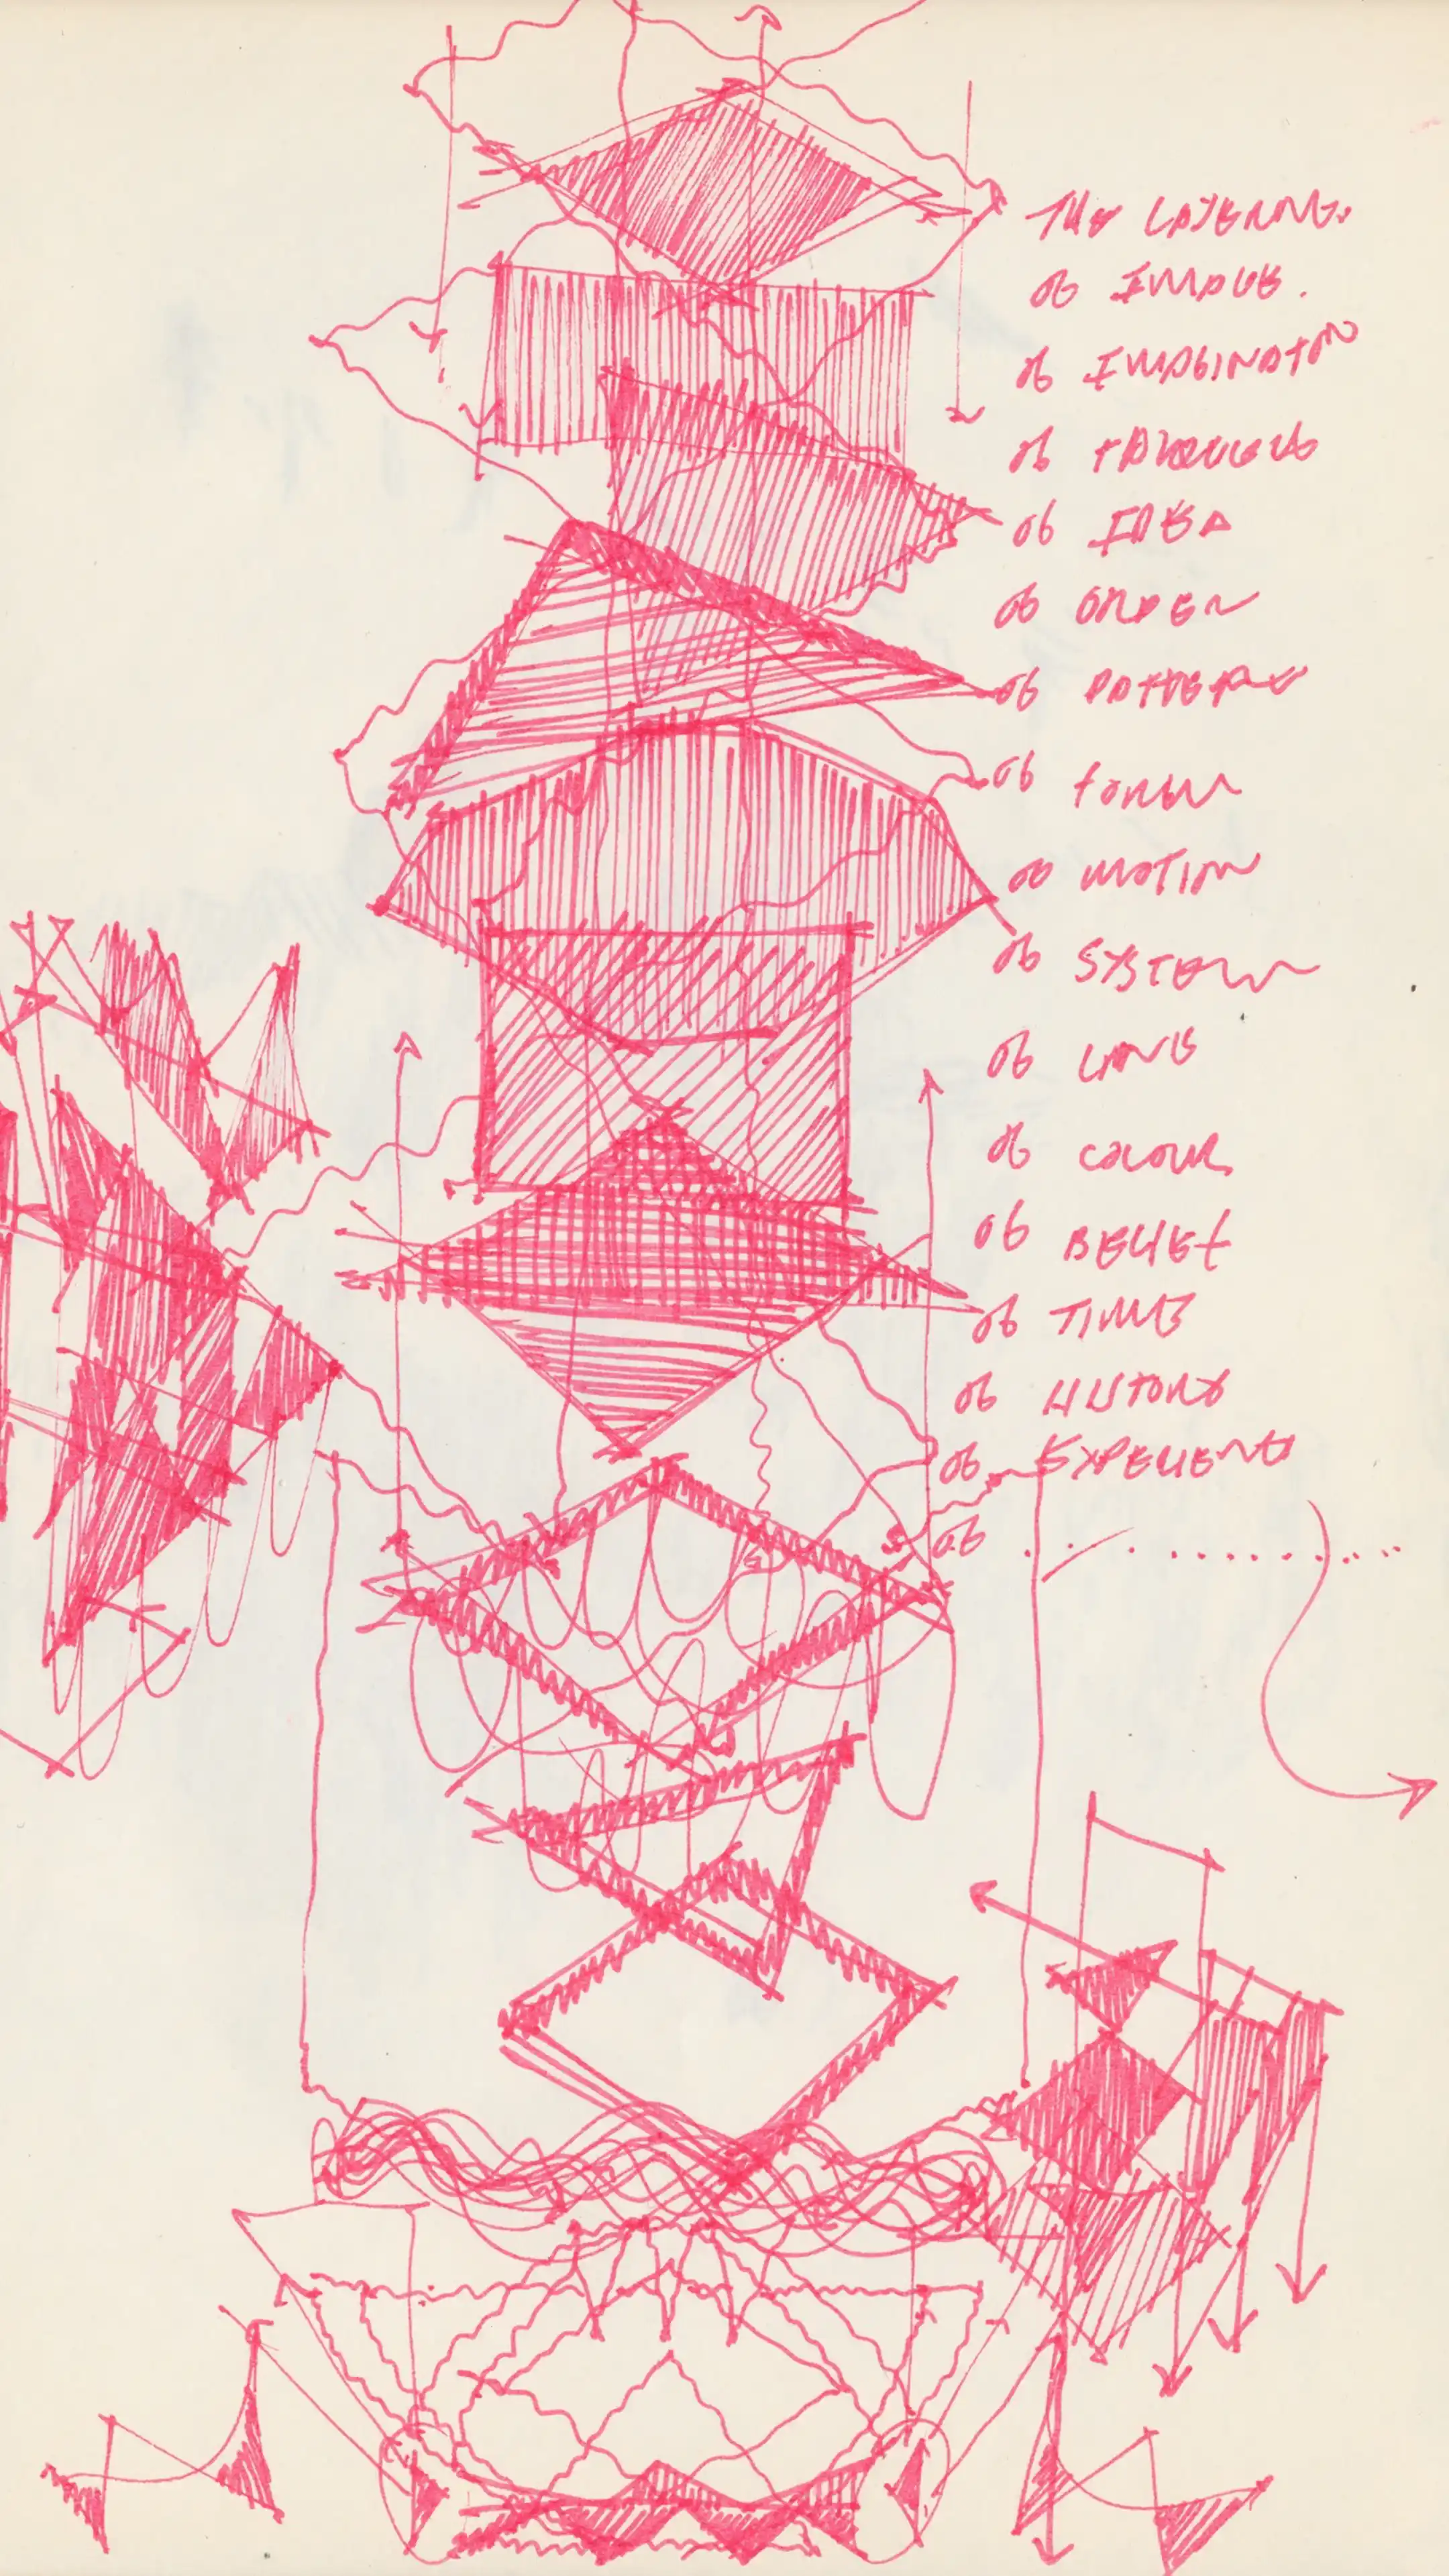 THE LAYERING.
of IMAGE.
of IMAGINATION
of
of IDEA
of ORDER
of PATTERN
of FORM
of MOTION
of SYSTEM
of LINE
of COLOUR
of BELIEF
of TIME
of HISTORY
of EXPERIENCE
of . . . . . . . . . . .